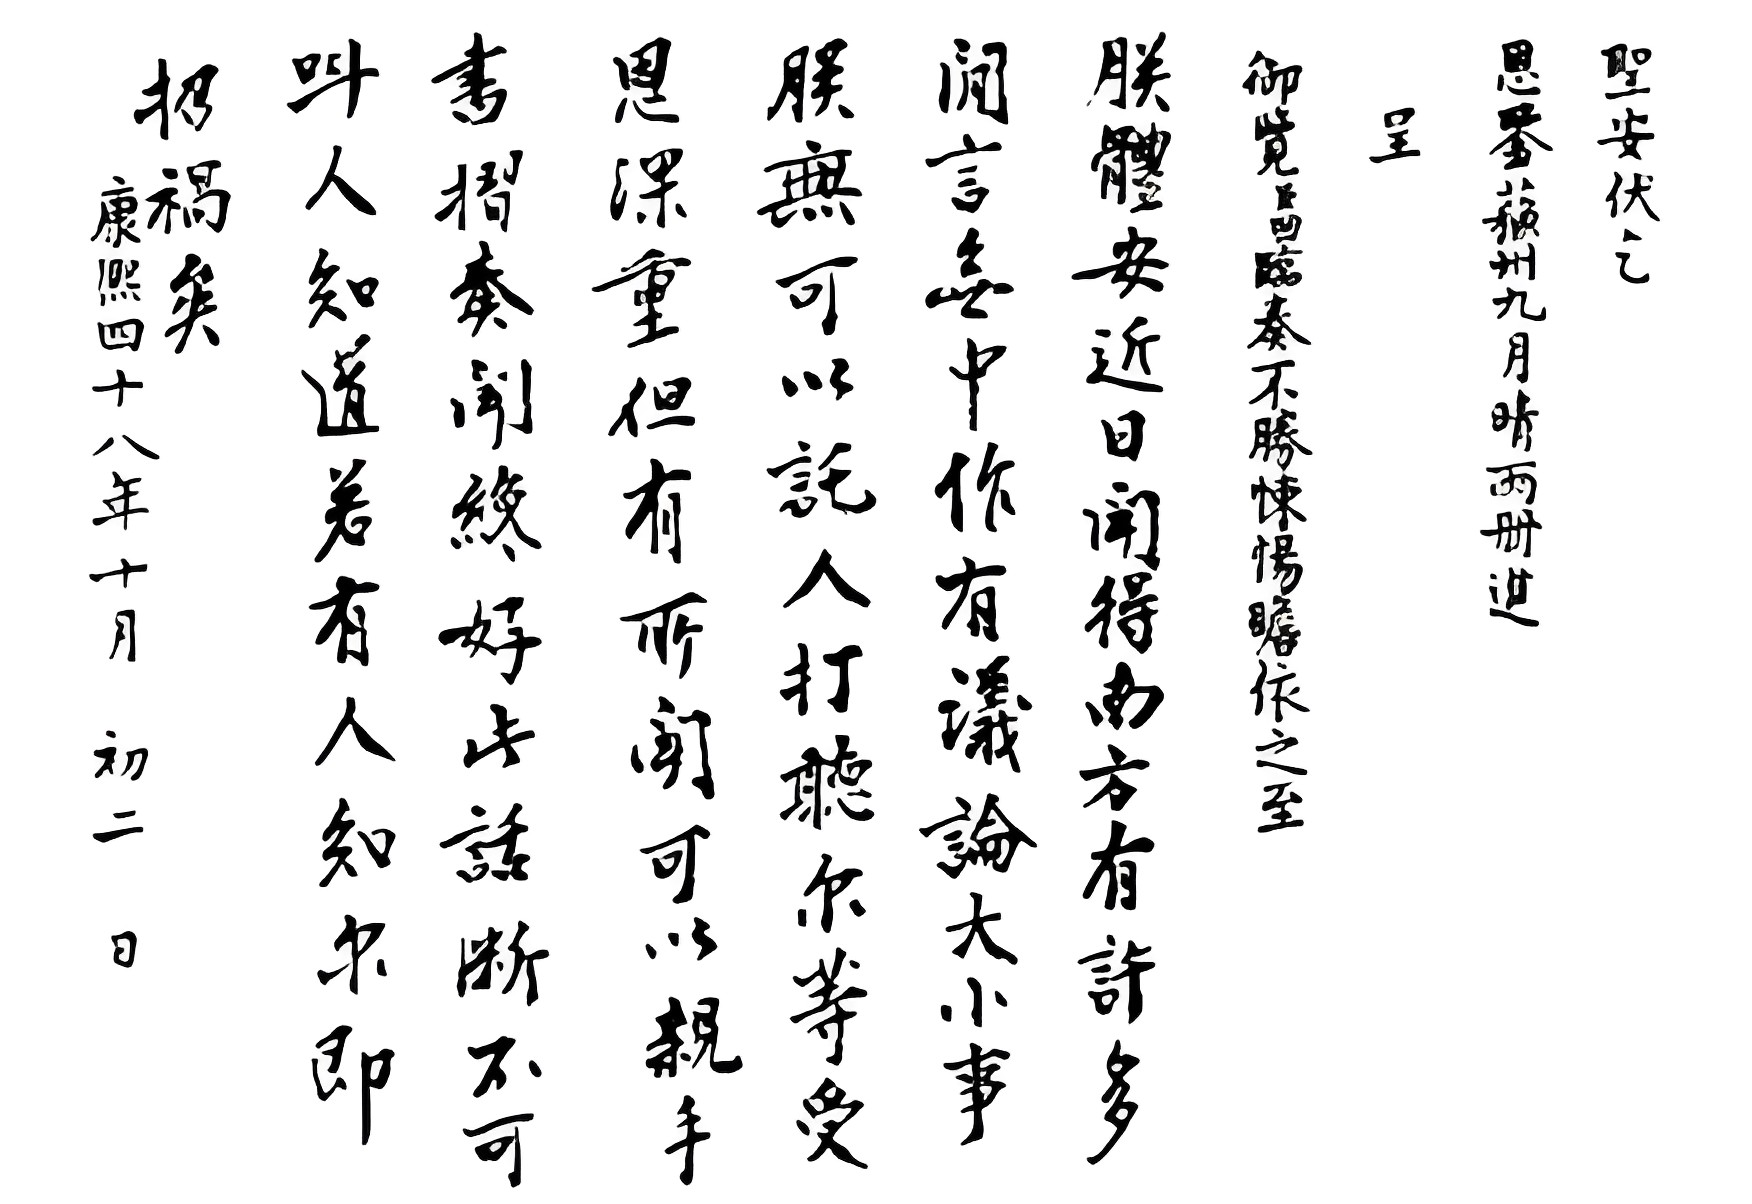 聖安伏乞
恩鑒蘓州九月晴雨冊進
呈
御覽啚臨奏不勝悚惕瞻依之至
朕體安近日聞得南方有許多
閒言無中作有議論大小事
朕無可以託人打聽尔等受
恩深重但有所聞可以親手
書摺奏聞終好此話断不可
叫人知道若有人知尔即
招禍矣
康熙四十八年十月 初二 日